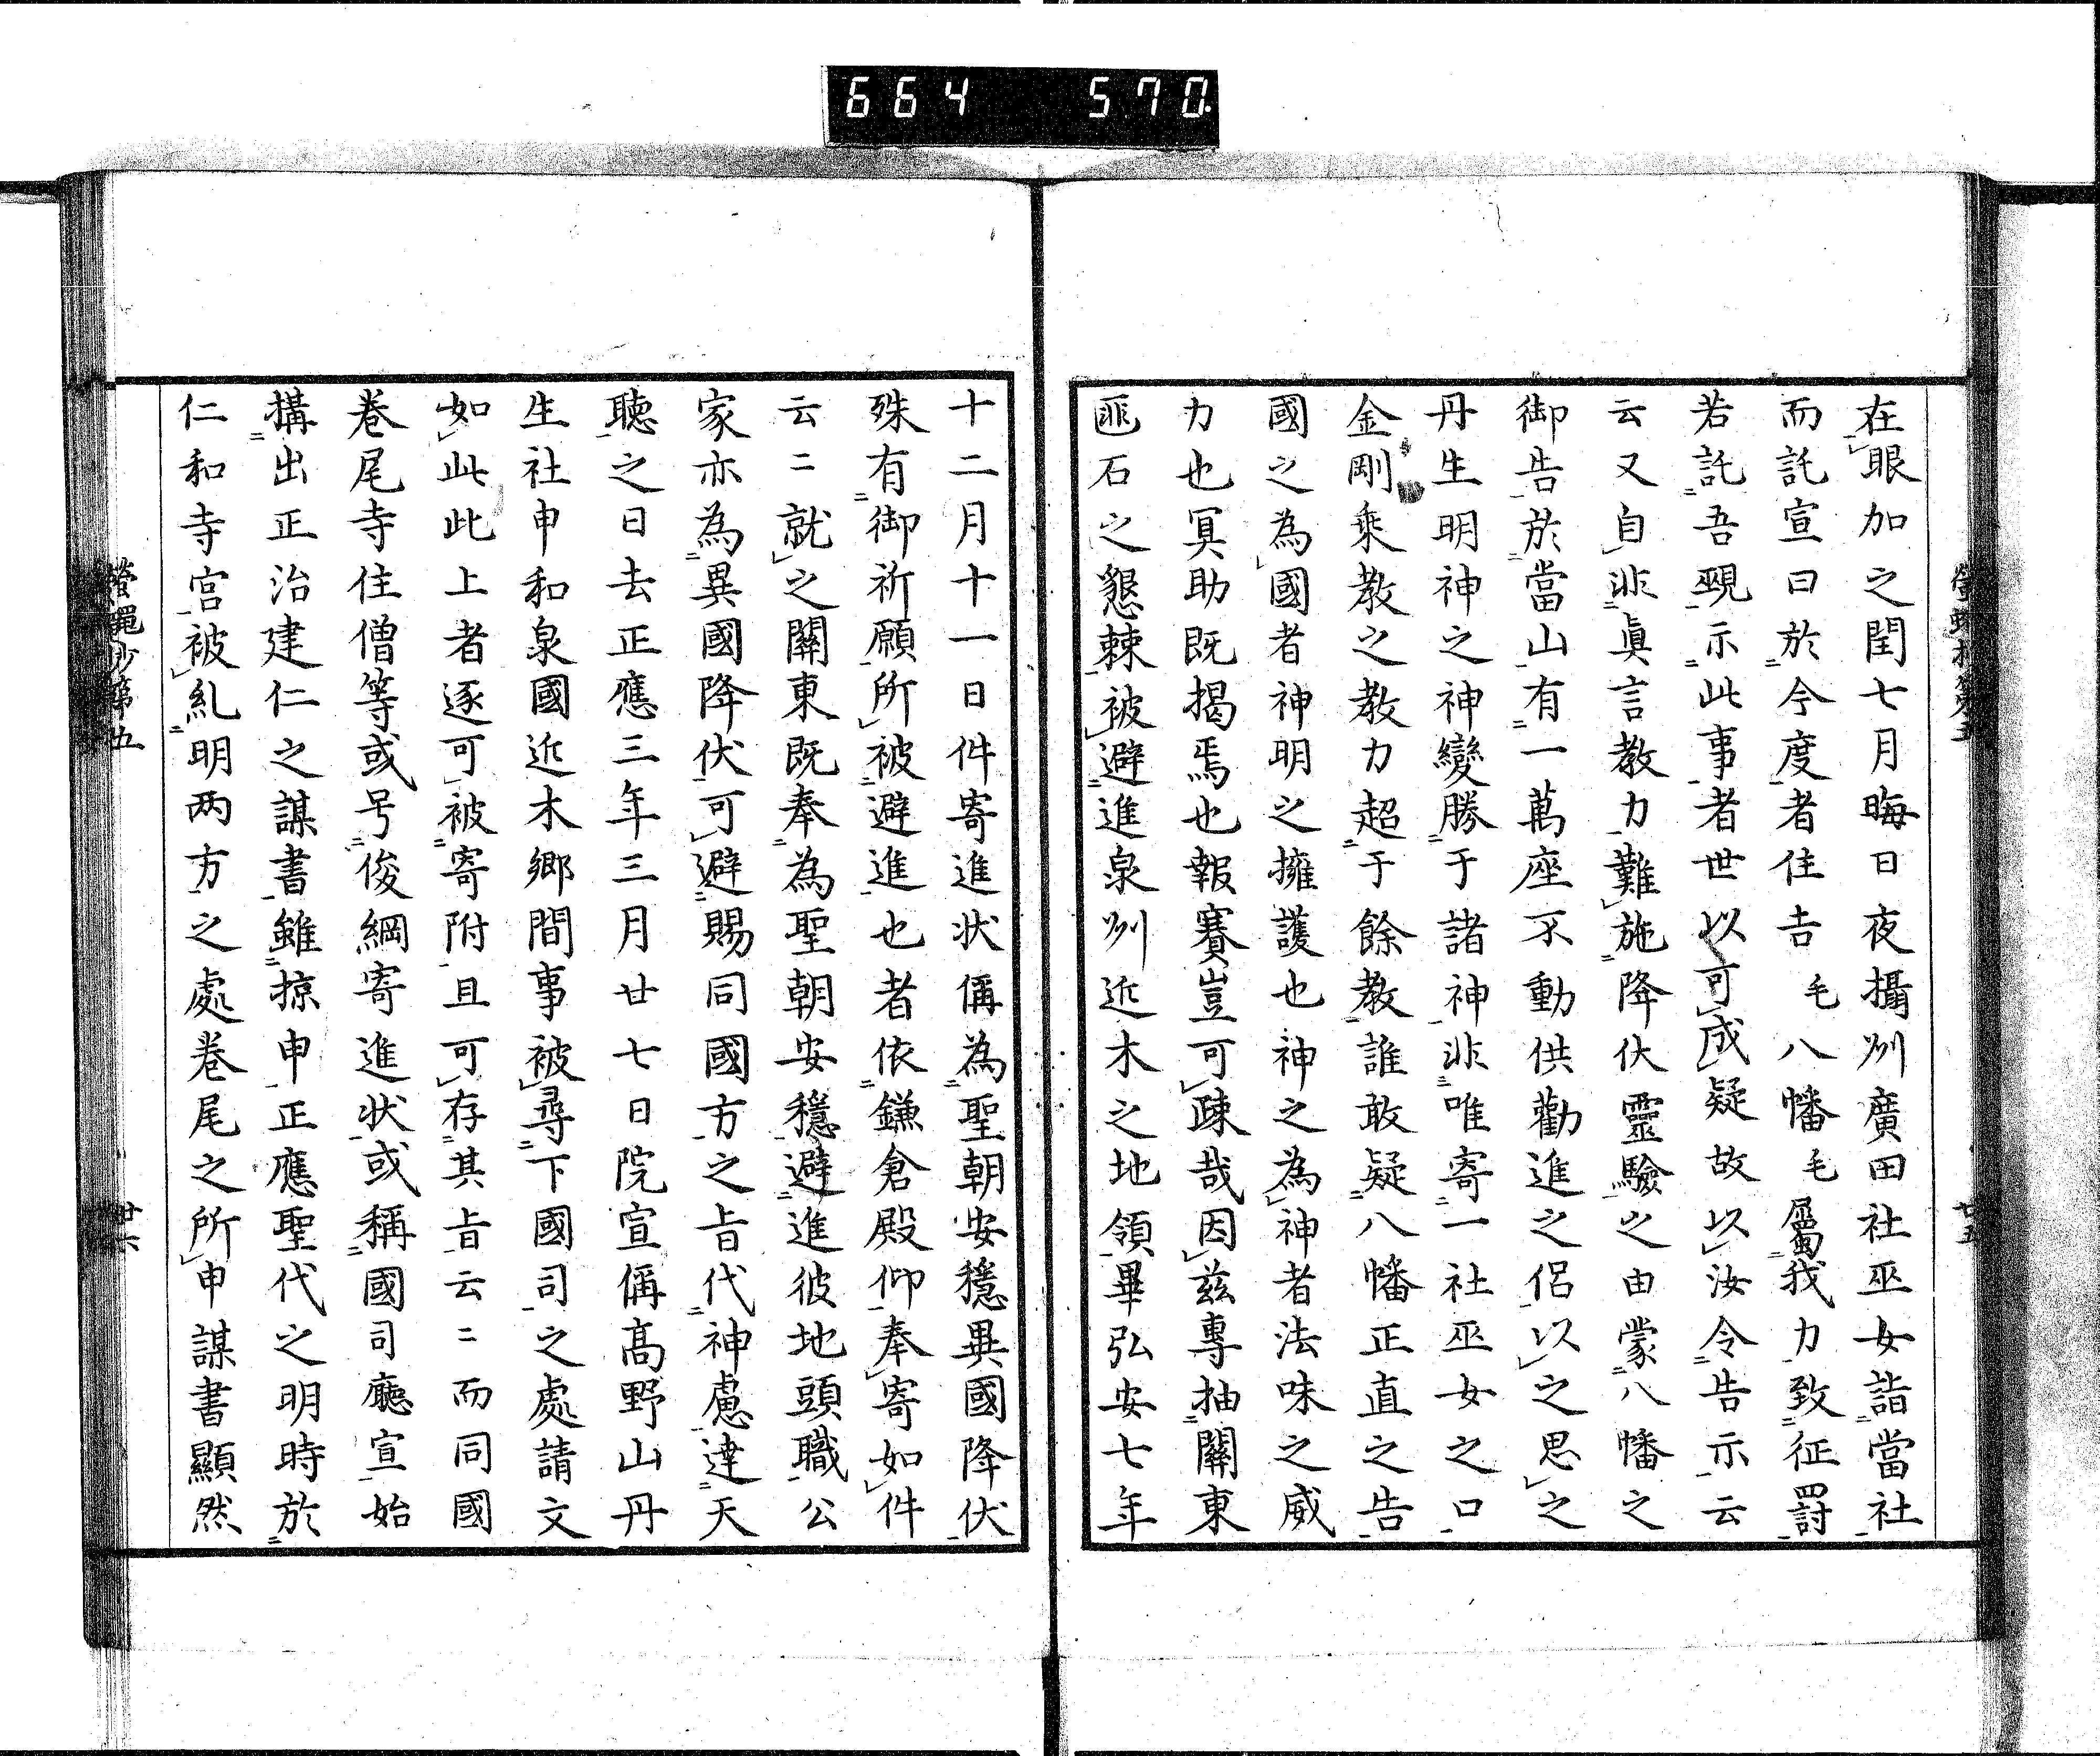 664 570.
在眼加之閏七月晦日夜攝州廣田社巫女詣當社
而託宣曰於今度者住吉毛八幡毛屬我力致征罸
若託吾覡示此事者世以可成疑故以汝令告示云
云又自非眞言教力難施降伏靈驗之由蒙八幡之
御告於當山有一萬座不動供勸進之侶以之思之
丹生明神之神變勝于諸神非唯寄一社巫女之口
金剛乘教之教力超于餘教誰敢疑八幡正直之告
國之為國者神明之擁護也神之為神者法味之威
力也冥助既揭焉也報賽豈可疎哉因茲專抽關東
匪石之懇棘被避進泉州近木之地領畢弘安七年
十二月十一日件寄進状偁為聖朝安穩異國降伏
殊有御祈願所被避進也者依鎌倉殿仰奉寄如件
云〻就之關東既奉為聖朝安穩避進彼地頭職公
家亦為異國降伏可避賜同國方之㫖代神慮達天
聽之日去正應三年三月廿七日院宣偁髙野山丹
生社申和泉國近木鄉間事被尋下國司之處請文
如此此上者逐可被寄附且可存其㫖云〻而同國
卷尾寺住僧等或号俊綱寄進状或稱國司廳宣始
搆出正治建仁之謀書雖掠申正應聖代之明時於
仁和寺宮被糺明两方之處卷尾之所申謀書顯然
廿六